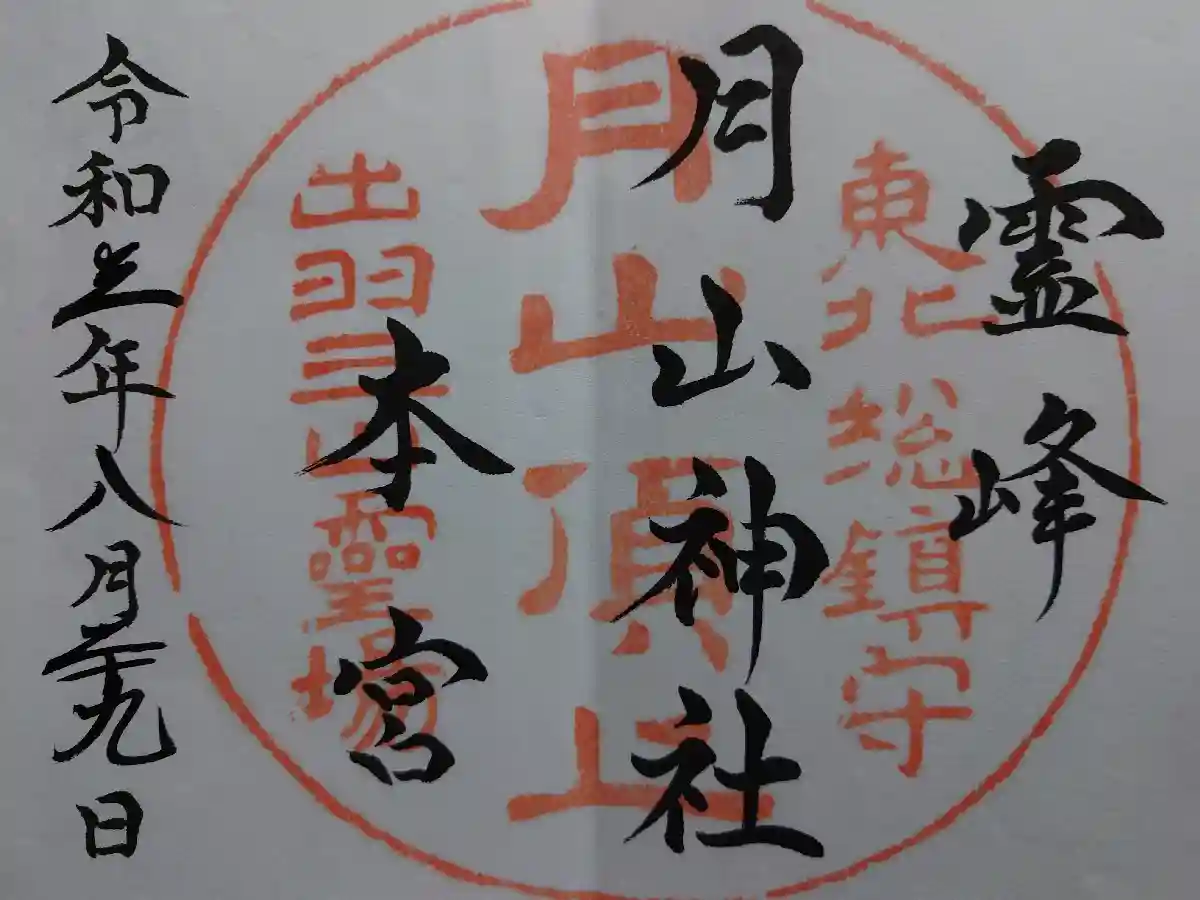 霊峰
東北総鎮守
月山神社
月山頂上
本宮
出羽三山靈場
令和三年八月二十九日